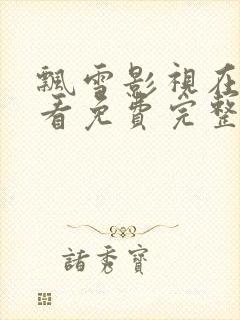 飄雪影視在
看免費完整
諸秀寶